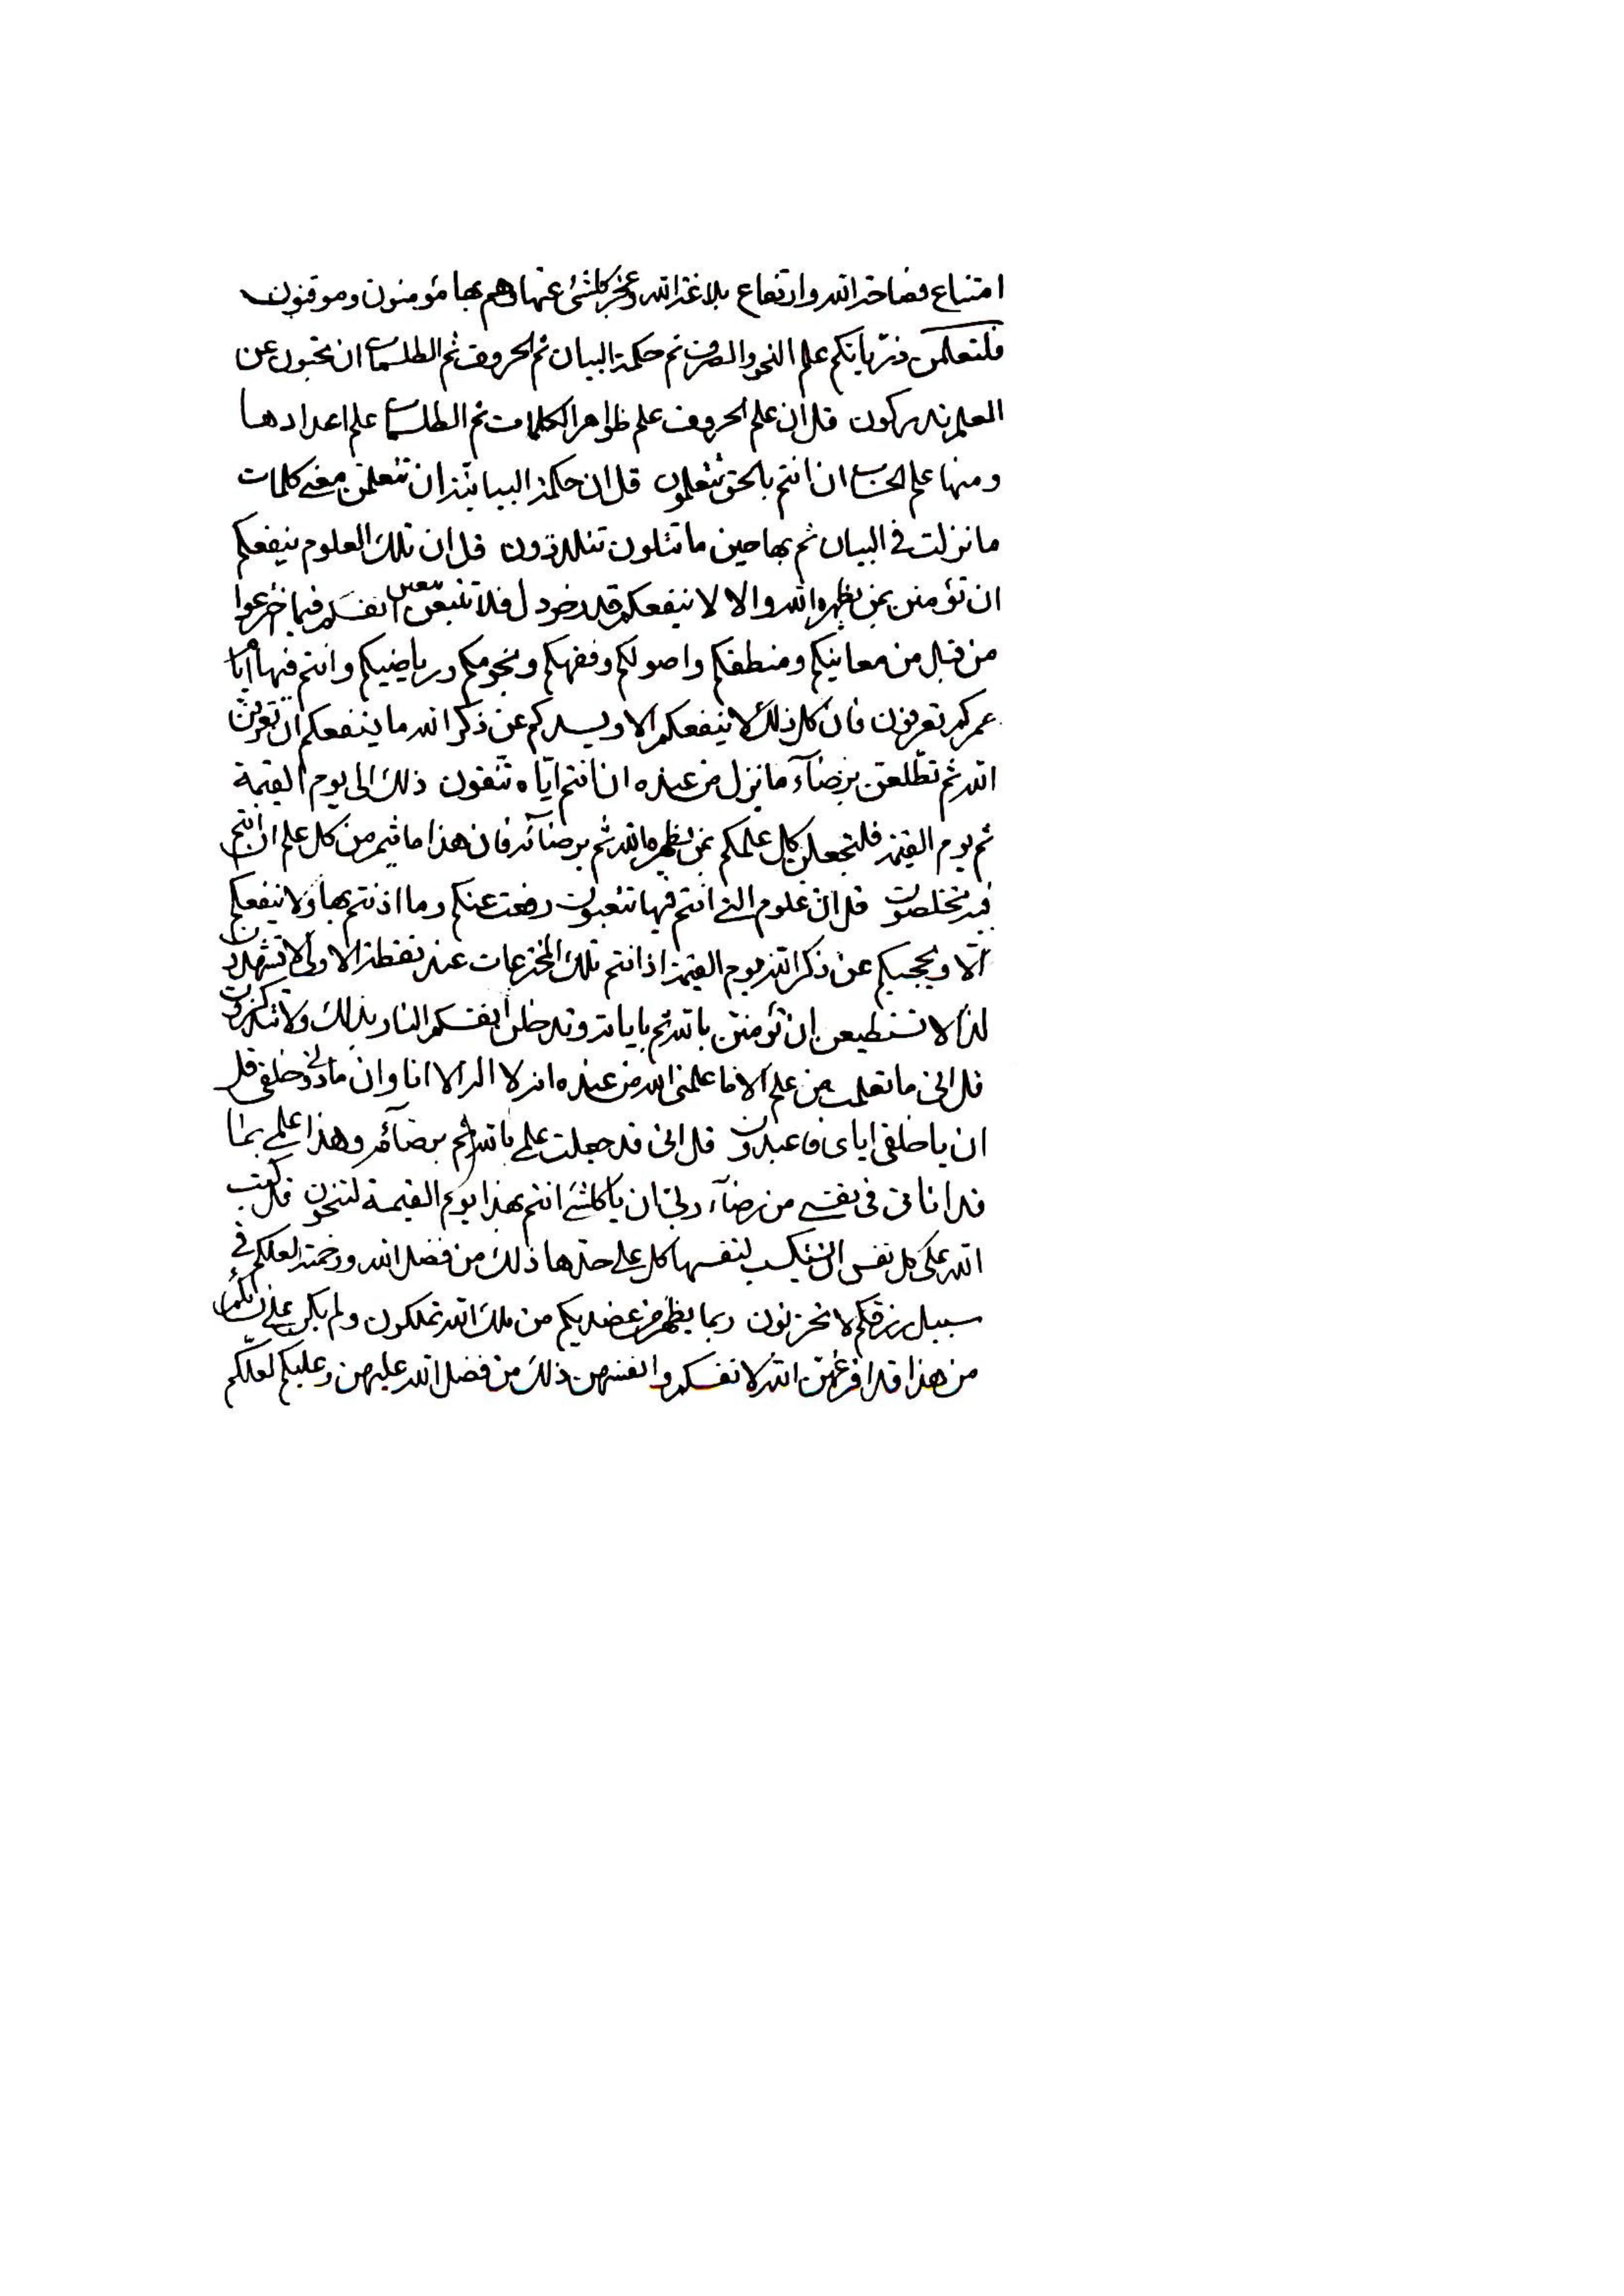 امتناع فصاحة الله وارتفاع بلاغة الله وعجز كلشئ عنها وهم بها مؤمنون وموقنون
فلتعلمن ذرياتكم علم النحو والصرف ثم حكمة البيان ثم الحروف ثم الطلسمات ان تحبون عن
العلم تدركون قل ان علم الحروف علم ظواهر الكلمات ثم الطلسمات علم اعدادها
ومنها علم الحساب ان انتم بالحق تتعلمون قل ان حكمة البيانية ان تتعلمن معنى كلمات
ما نزلت فى البيان ثم بها حين ما تتلون تتلذذون قل ان تلك العلوم ينفعكم
ان تؤمنن بمن يظهره الله والا لا ينفعكم قدر خردل فلا تتبعن انفسكم فيما اخترعوا
من قبل من معانيكم ومنطقكم واصولكم وفقهكم ونجومكم ورياضيكم وانتم فيها
عمركم تعرفون فان كل ذلك لا ينفعكم الا عن ذكر الله ما ينفعكم ان تعرفن
الله ثم تطلعن برضآء ما نزل من عنده ان انتم اياه تتقون ذلك الى يوم القيمة
ثم يوم القيمة فلتجعلن كل علمكم بمن يظهره الله ثم برضائه فان هذا ما يثمر من كل علم ان انتم
فيه تخلصون قل ان علوم التى انتم فيها تتعبون رفعت عنكم وما اذنتم بها ولا ينفعكم
الا ويحجبكم عن ذكر الله يوم القيمة اذ انتم تلك المخترعات عند نقطة الاولى لا تشهدون
لذا لا تستطيعن ان تؤمنن بالله ثم باياته وتدخلن انفسكم النار بذلك ولا تتذكرون
قل انى ما تعلمت من علم الا ما علمنى الله من عنده انه لا اله الا انا وان ما دونى خلقى قل
ان يا خلقى اياى فاعبدون قل انى قد جعلت علمى بالله ثم برضائه وهذا علمى بما
قد اناقى فى نفسى من رضآء ربى ان يا كلشئ انتم بهذا يوم القيمة لتنجون قل كتب
الله على كل نفس ان تكسب لنفسها كل على حدها ذلك من فضل الله ورحمته لعلكم فى
سبيل رزقكم لا تحزنون وبما يظهر من عضديكم من ملك الله تملكون ولم يكن على
من هذا قد افرغهن الله لانفسكم وانفسهن ذلك من فضل الله عليهن وعليكم لعلكم